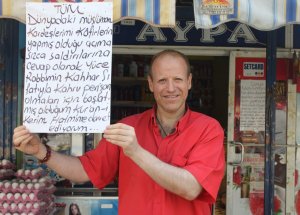 TÜRK
Dünyadaki müslüman
Kardeşlerimi Kafirlerin
yapmış olduğu acıma
sızca saldırılarına
cevap olarak Yüce
Rabbimin Kahhar Sı
fatıyla kahru perişan
olmaları için başlat
mış olduğum Kuran-ı
Kerim
ediyorum
AYPA
SETCARD